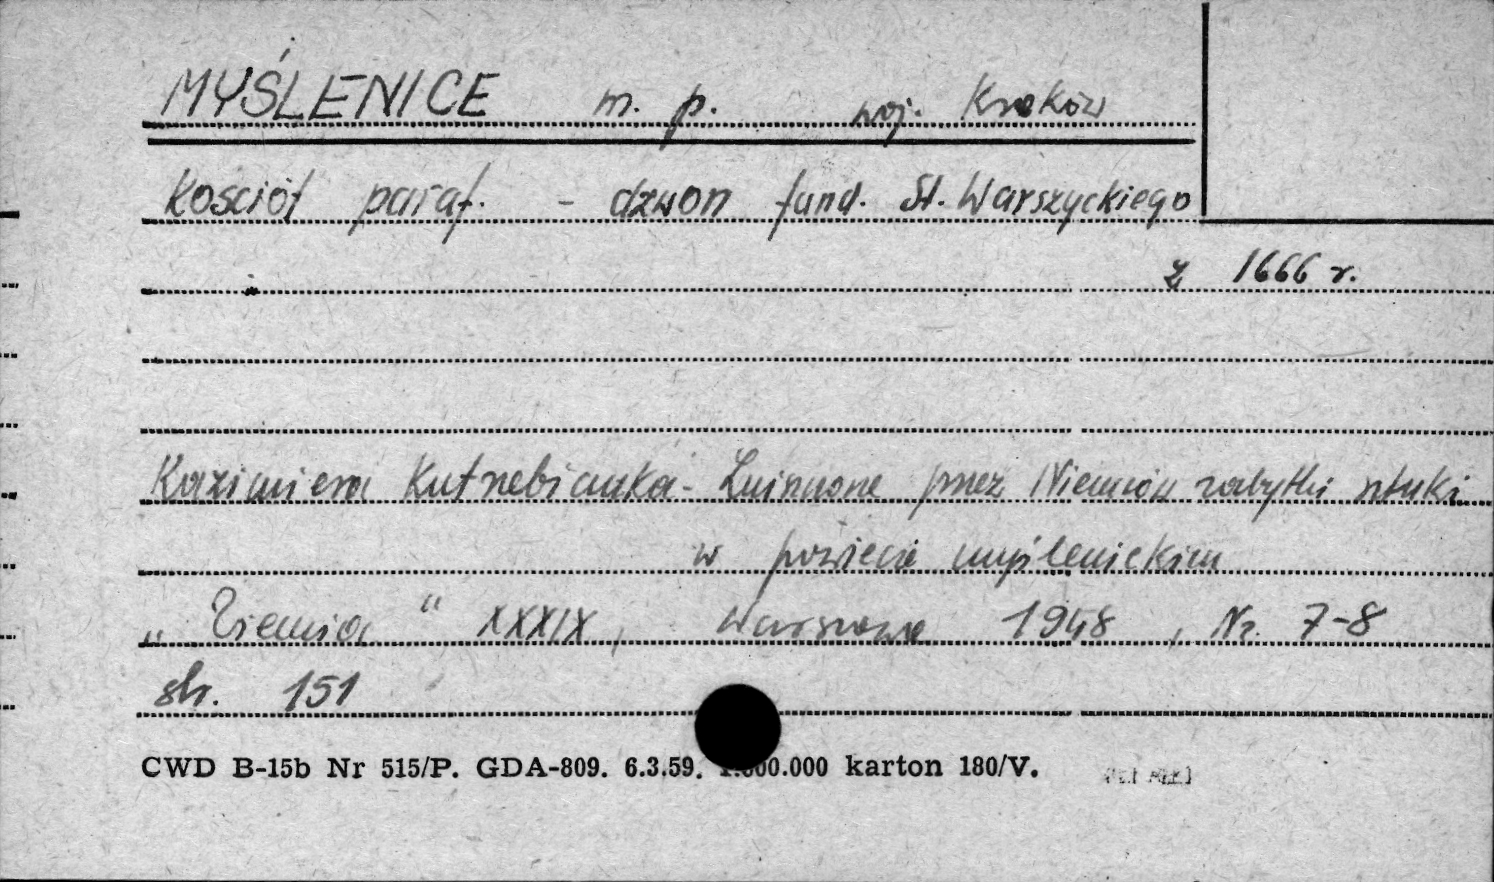 MYŚLENICE m. p. woj. Kraków
Kościół paraf. - dzwon fund. St. Warszyckiego
z 1666 r.
Kazimiera Kutrzebianka - Zniszczone przez Niemców zabytki sztuki
w powiecie myślenickim
„Ziemia" XXXIX, Warszawa 1948, Nr. 7-8
str. 151
CWD B-15b Nr 515/P. GDA-809. 6.3.59. 1.000.000 karton 180/V.